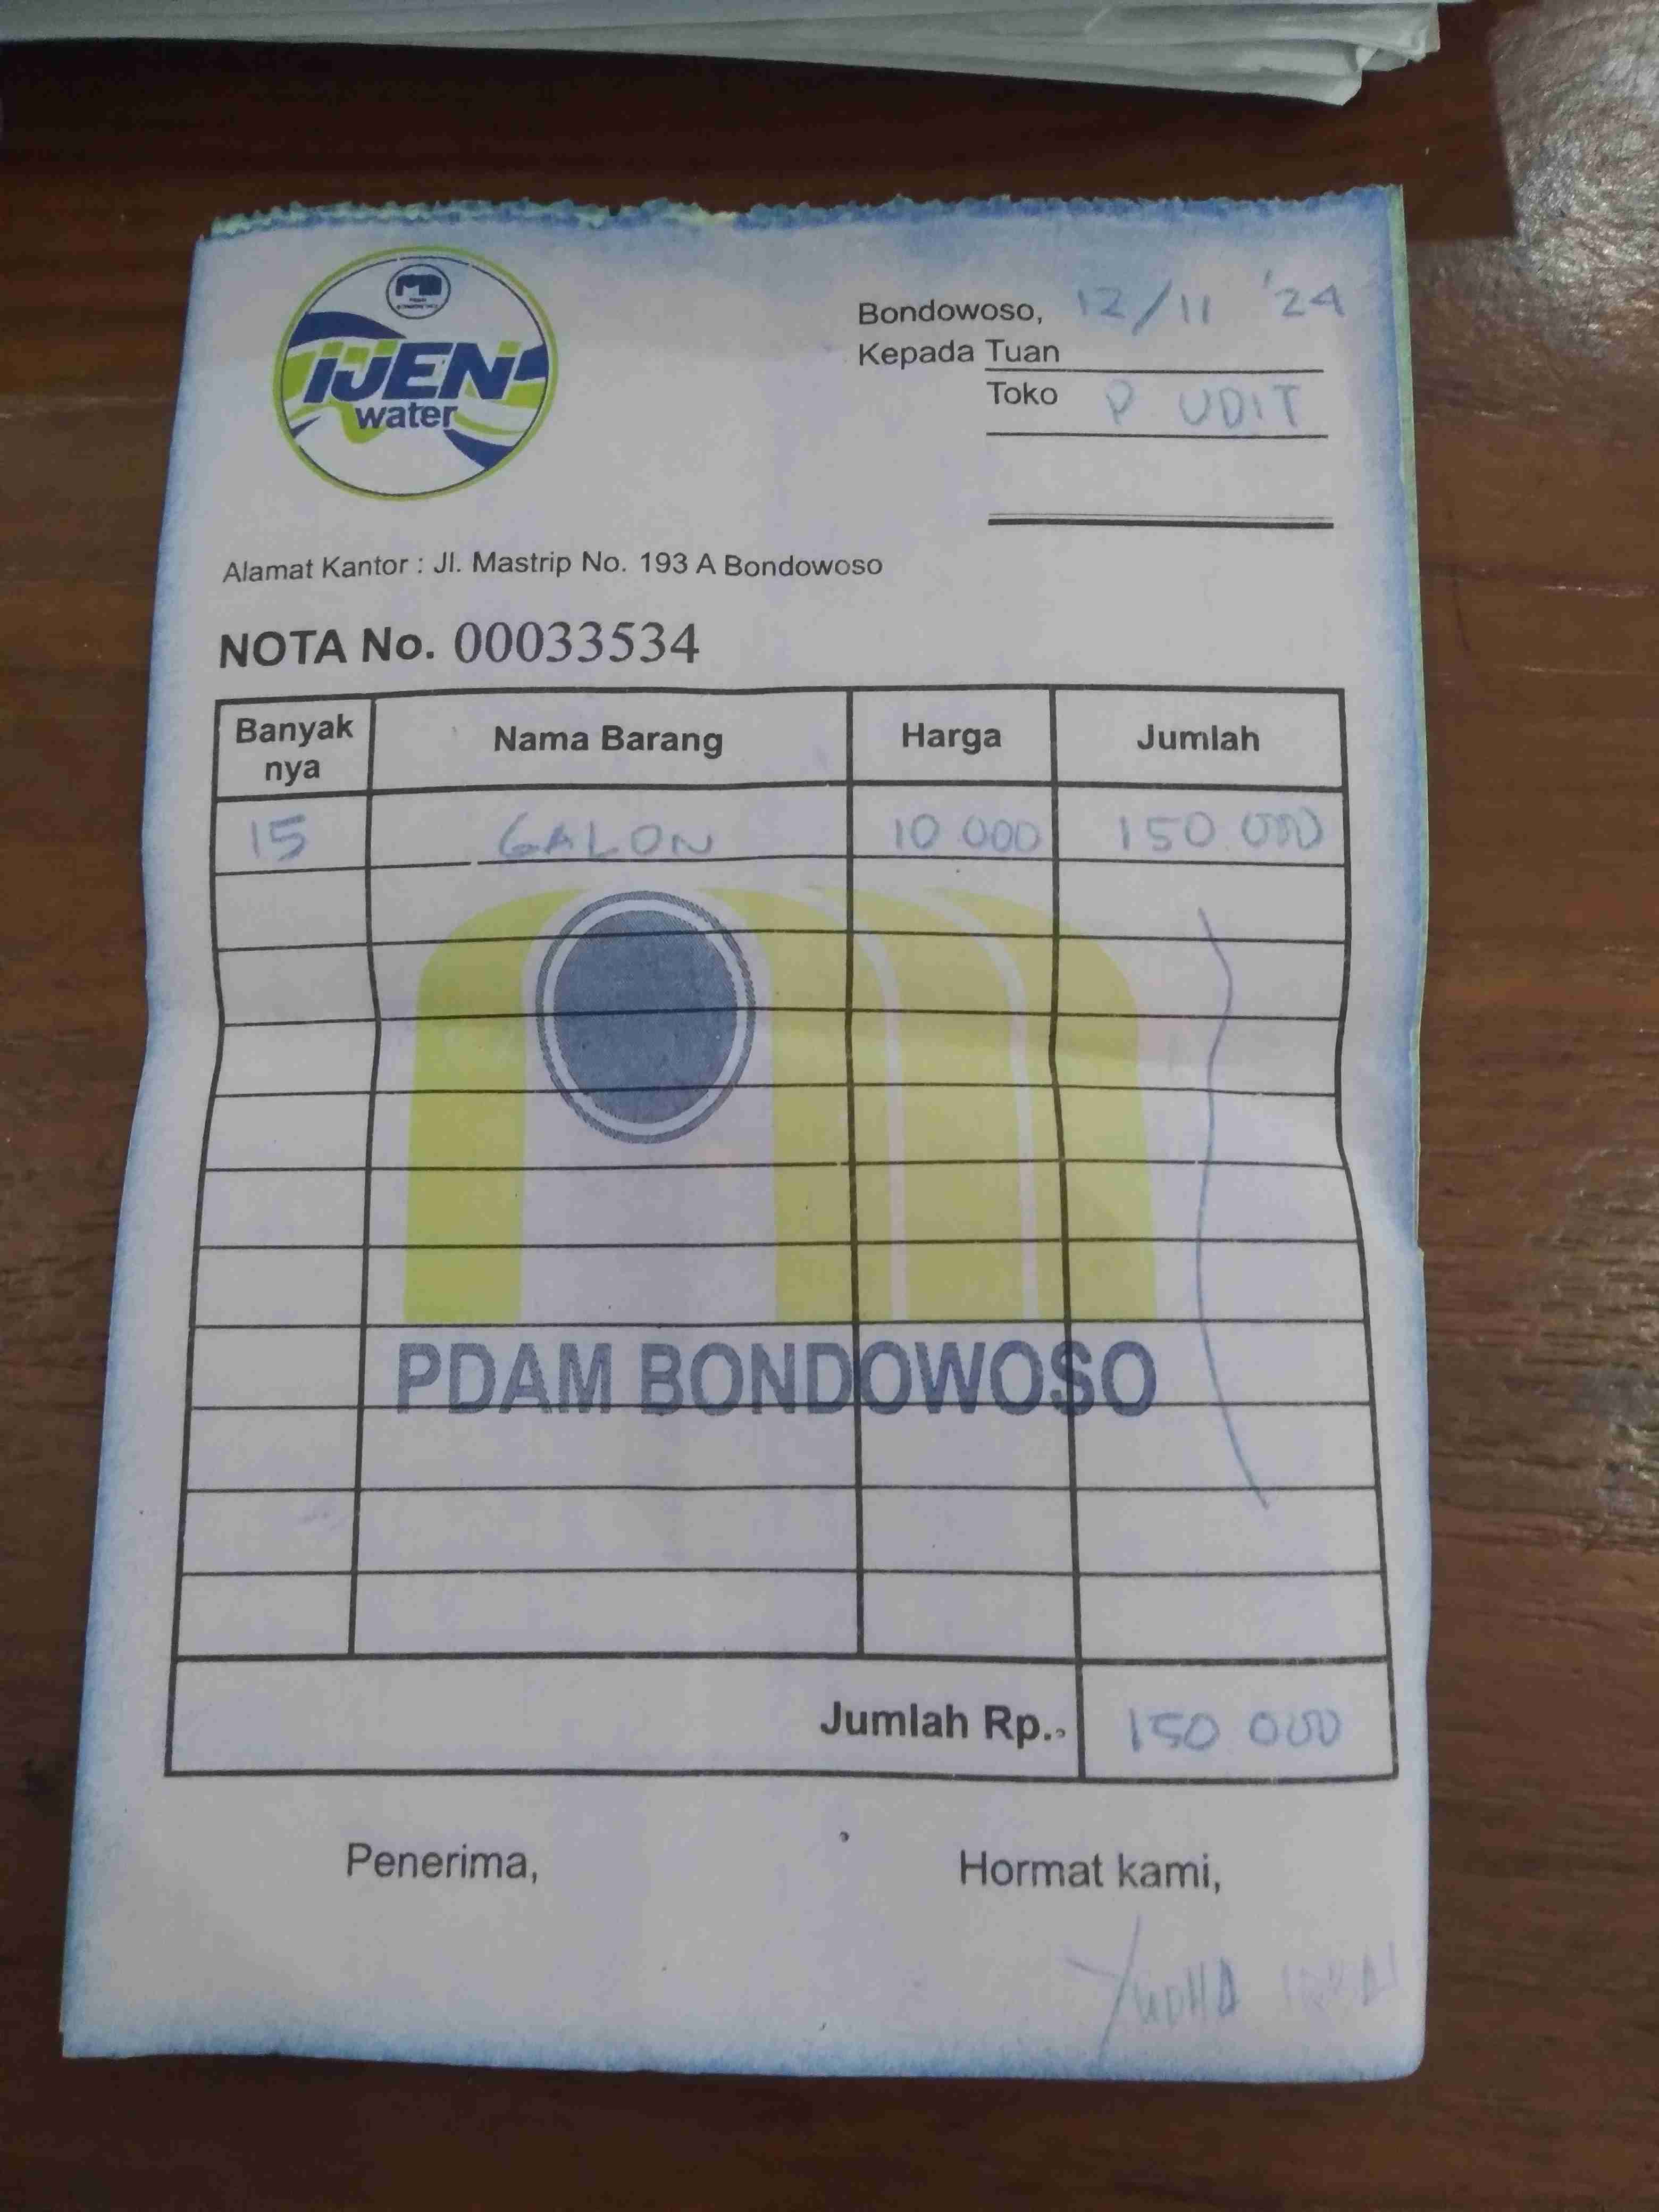 IJEN
water
Bondowoso, 12/11 '24
Kepada Tuan
Toko P UDIT
Alamat Kantor : Jl. Mastrip No. 193 A Bondowoso
NOTA No. 00033534
Banyak nya Nama Barang Harga Jumlah
15 GALON 10 000 150 000
PDAM BONDOWOSO
Jumlah Rp.. 150 000
Penerima, Hormat kami,
YUDHA